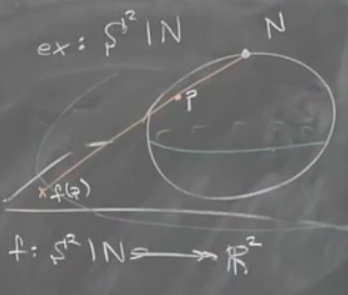 ex: S² \ N
N
p
f(p)
f: S² \ N → ℝ²